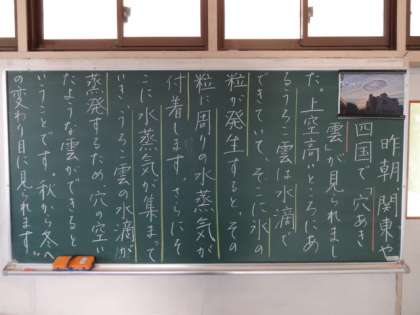 昨朝関東や
四国で「穴あき
雲が見られまし
た。上空高いところにあ
るうろこ雲は水滴で
できていて、そこに氷の
粒が発生すると、その
粒に周りの水蒸気が
付着します。さらにそ
こに水蒸気が集まって
いき、うろこ雲の水滴が
蒸発するため穴の空い
たような雲ができると
いうことです。秋から冬へ
の変わり目に見られます。